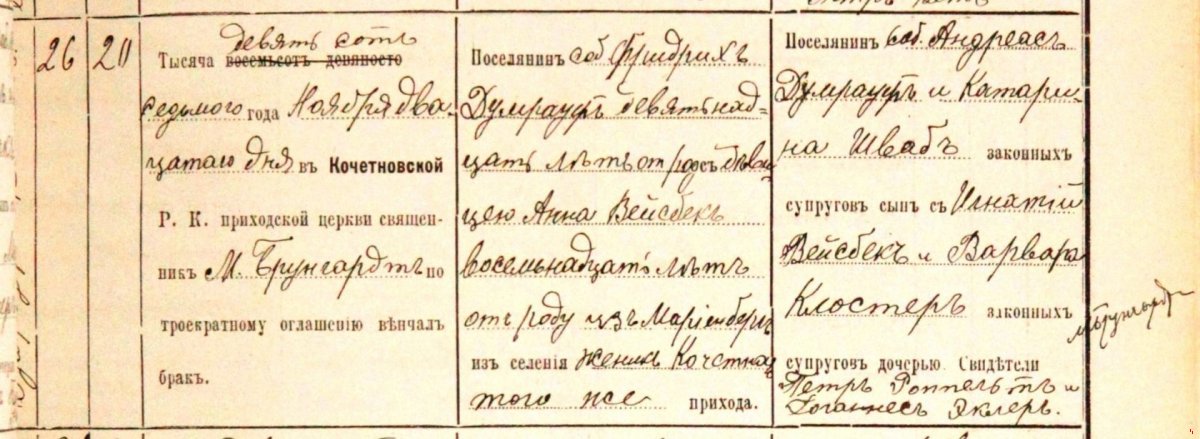 26
20
девять сотъ
Тысяча восемьсотъ девяносто
седьмого года Ноября два-
цатаго дня въ Кочетновской
Р. К. приходской церкви священ-
никъ М. Брунгардтъ по
троекратному оглашенію вѣнчалъ
бракъ.
Поселянинъ соб. Фридрихъ
Думрауфъ девятьнад-
цать лѣтъ отъ роду съ дѣви-
цею Анна Вейсбекъ
восемьнадцать лѣтъ
отъ роду изъ Маріенбергъ
изъ селенія женихъ Кочетной
того же прихода.
Поселянинъ соб. Андреасъ
Думрауфъ и Катари-
на Швабъ законныхъ
супруговъ сынъ съ Игнатій
Вейсбекъ и Варвара
Клостеръ законныхъ
супруговъ дочерью. Свидѣтели
Петръ Роппельтъ и
Іоганнесъ Эклеръ.
М. Брунгардтъ